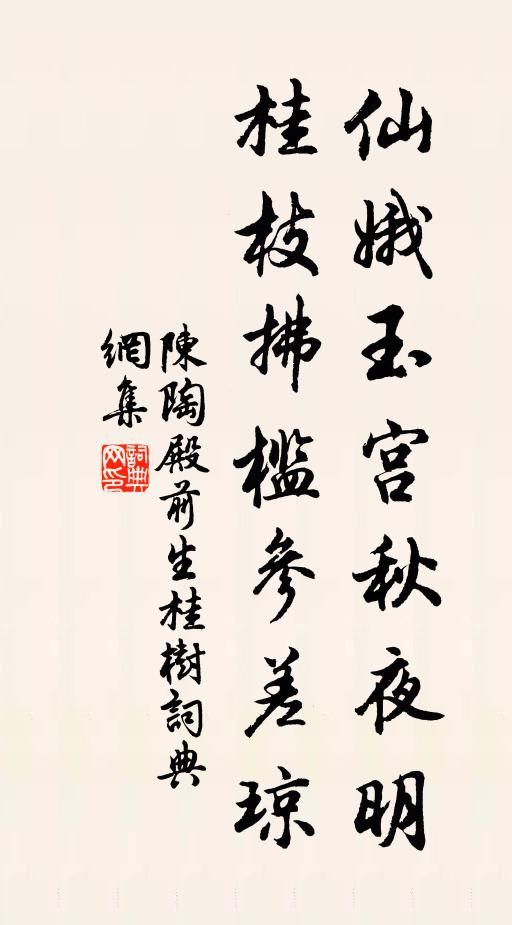 仙娥玉宫秋夜明
桂枝拂槛參差琼
陳陶殿前生桂樹詞典
網集
詞典
网印